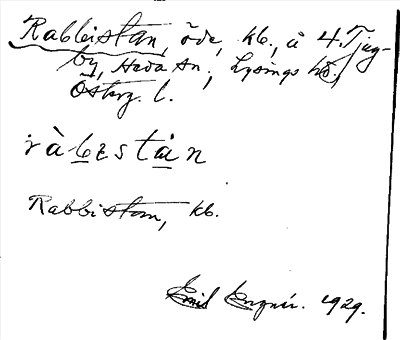 Rabbistan, öde, kb., å 4. Tjug-
by, Heda sn., Lysings hd.,
Österg. l.
ràbestàn
Rabbistan, kb.
Emil 1929.